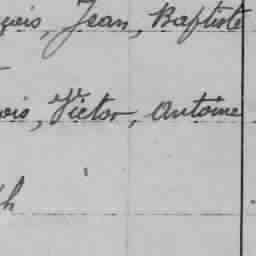 çois, Jean, Baptiste
çois, Victor, Antoine
ph